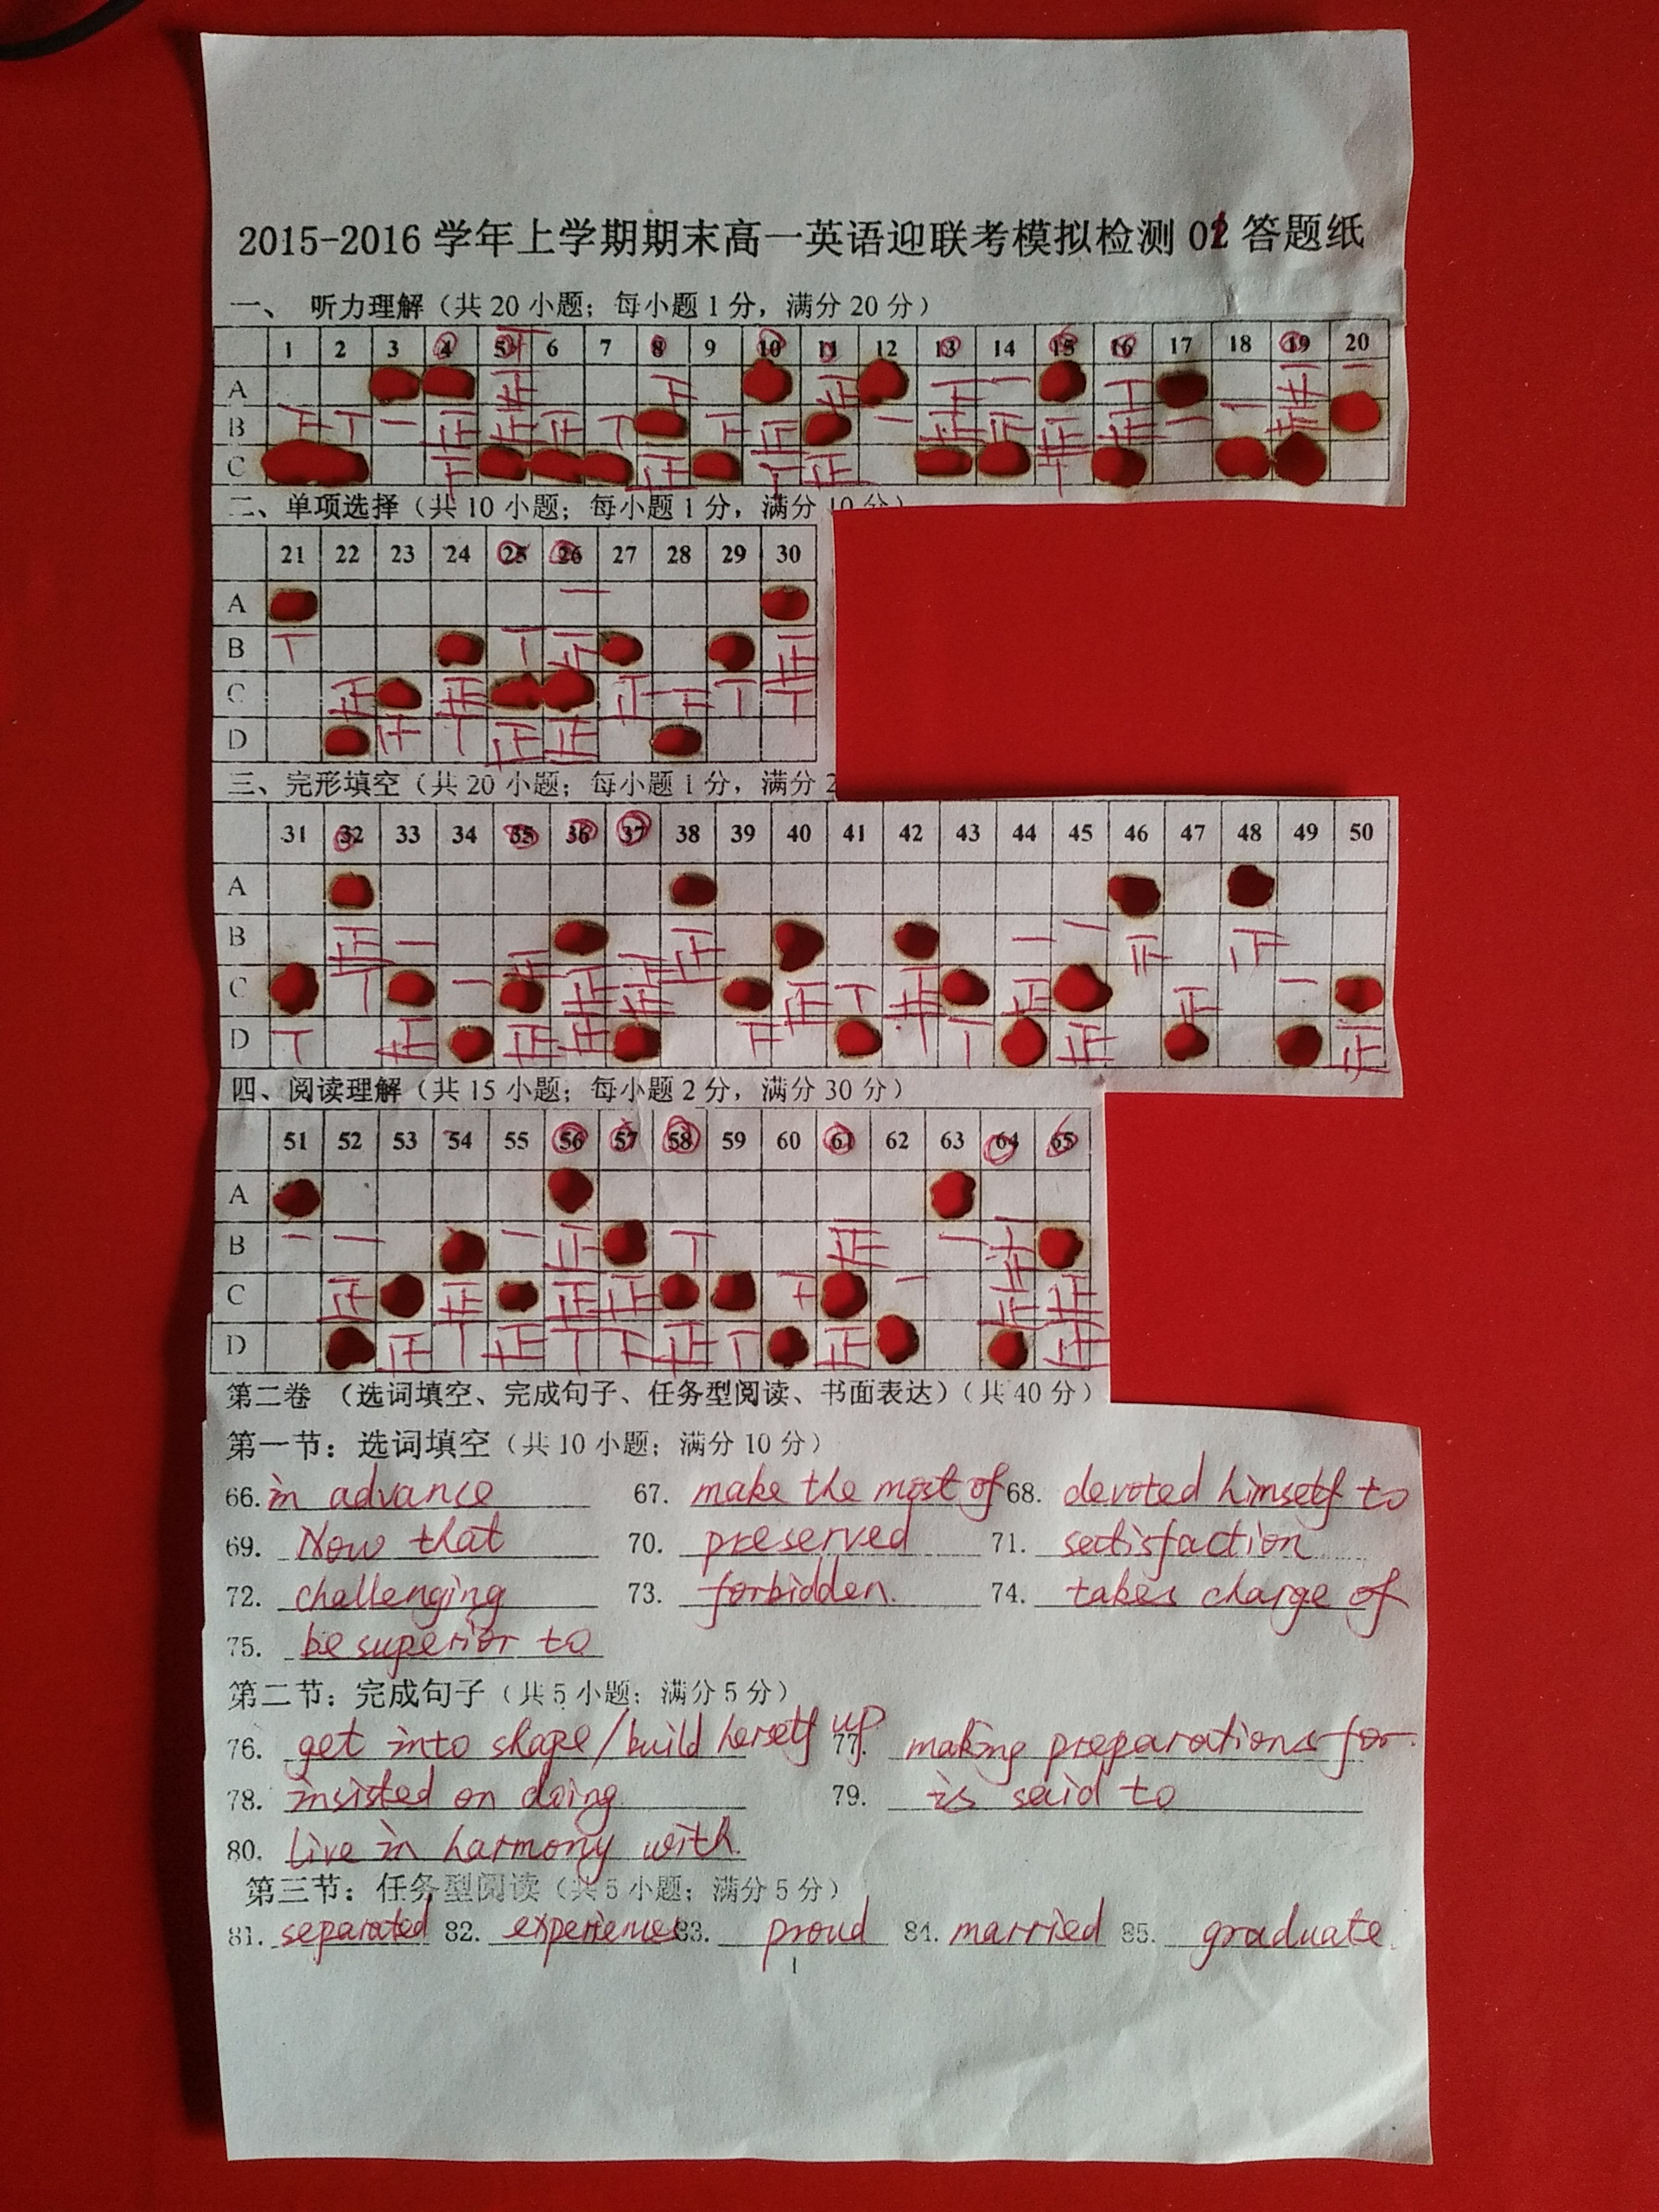 2015-2016 学年上学期期末高一英语迎联考模拟检测 01 答题纸
一、 听力理解（共 20 小题；每小题 1 分，满分 20 分）
1 2 3 4 5 6 7 8 9 10 11 12 13 14 15 16 17 18 19 20
A
B
C
二、单项选择（共 10 小题；每小题 1 分，满分 10 分）
21 22 23 24 25 26 27 28 29 30
A
B
C
D
三、完形填空（共 20 小题；每小题 1 分，满分 2
31 32 33 34 35 36 37 38 39 40 41 42 43 44 45 46 47 48 49 50
A
B
C
D
四、阅读理解（共 15 小题；每小题 2 分，满分 30 分）
51 52 53 54 55 56 57 58 59 60 61 62 63 64 65
A
B
C
D
第二卷 （选词填空、完成句子、任务型阅读、书面表达）（共 40 分）
第一节：选词填空（共 10 小题；满分 10 分）
66. in advance 67. make the most of 68. devoted himself to
69. Now that 70. preserved 71. satisfaction
72. challenging 73. forbidden. 74. takes charge of
75. be superior to
第二节：完成句子（共 5 小题；满分 5 分）
76. get into shape/build herself up 77. making preparations for
78. insisted on doing 79. is said to
80. live in harmony with.
第三节：任务型阅读（共 5 小题；满分 5 分）
81. separated 82. experiences 83. proud 84. married 85. graduate.
1